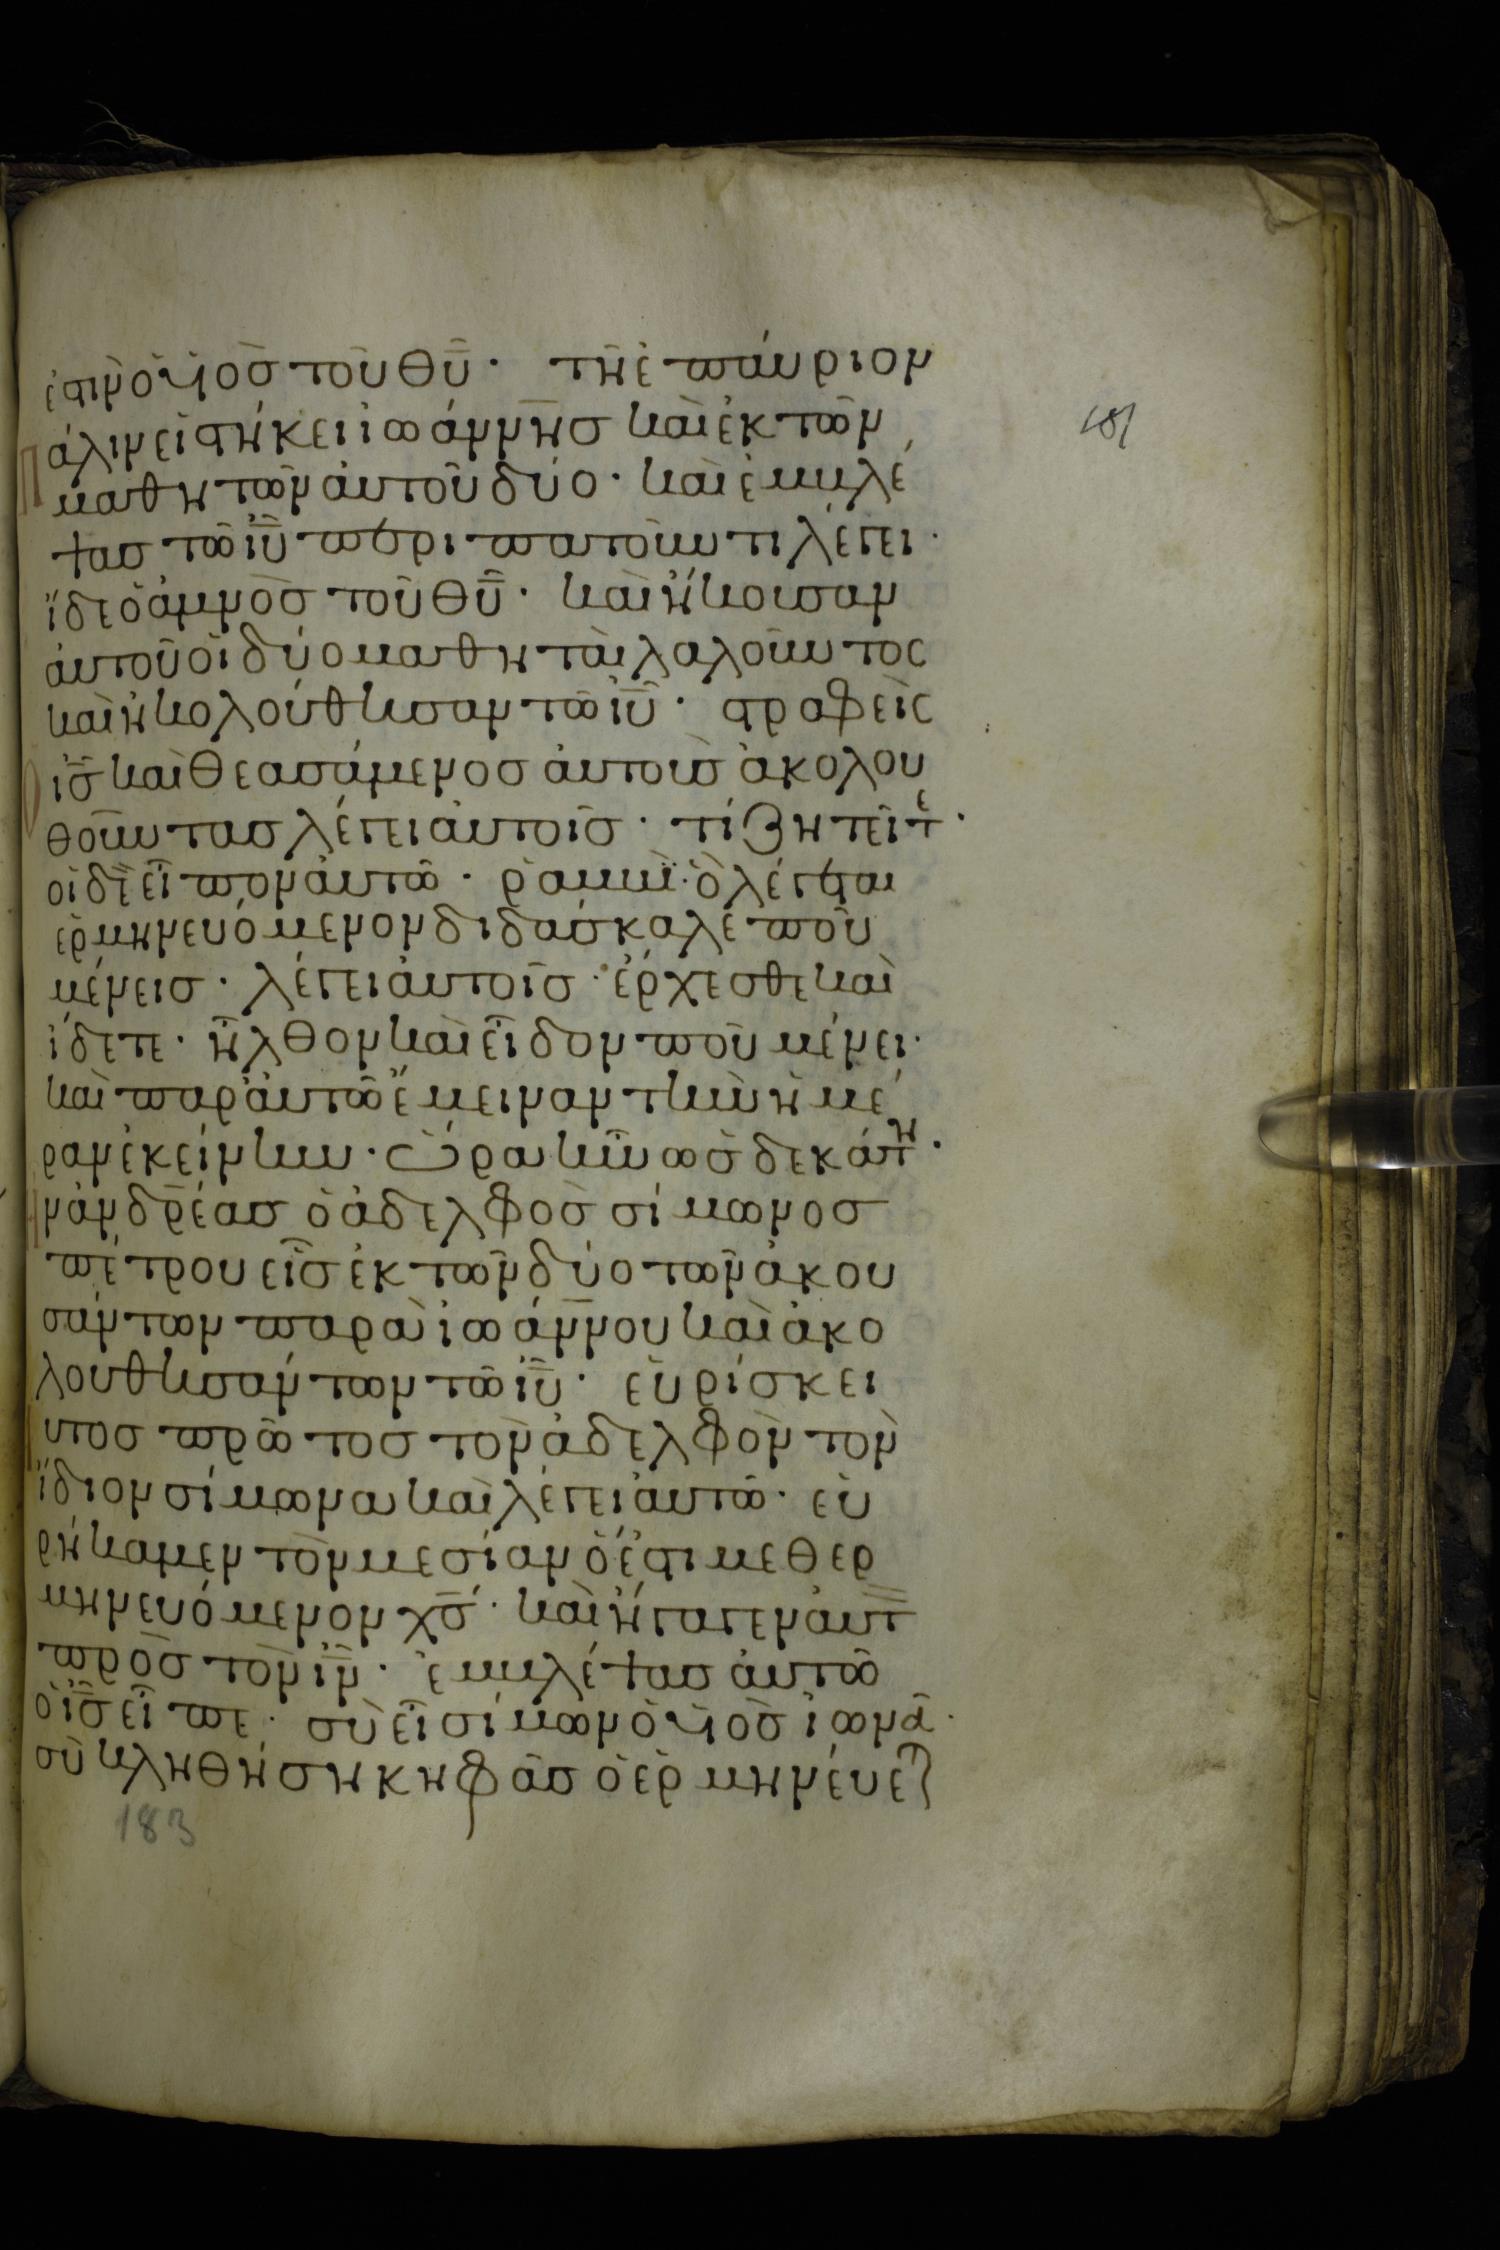 ἐστιν ὁ υἱὸς τοῦ θῦ · τῆ ἐπαύριον
181
πάλιν εἱστήκει ἰωάννης καὶ ἐκ τῶν
μαθητῶν αὐτοῦ δύο · καὶ ἐμβλέ
ψας τῶ ιῦ περιπατοῦντι λέγει ·
ἴδε ὁ ἀμνὸς τοῦ θῦ · καὶ ἤκουσαν
αὐτοῦ οἱ δύο μαθηταὶ λαλοῦντος
καὶ ἠκολούθησαν τῶ ιῦ · στραφεὶς
ὁ ις καὶ θεασάμενος αὐτοὺς ἀκολου
θοῦντας λέγει αὐτοῖς · τί ζητεῖτε ·
οἱ δὲ εἶπον αὐτῶ · ῥαββὶ · ὃ λέγεται
ἑρμηνευόμενον διδάσκαλε ποῦ
μένεις · λέγει αὐτοῖς · ἔρχεσθε καὶ
ἴδετε · ἦλθον καὶ εἶδον ποῦ μένει ·
καὶ παρ αὐτῶ ἔμειναν τὴν ἡμέ
ραν ἐκείνην · ὥρα ἦν ὡς δεκάτη ·
ἦν ἀνδρέας ὁ ἀδελφὸς σίμωνος
πέτρου εἷς ἐκ τῶν δύο τῶν ἀκου
σάντων παρὰ ἰωάννου καὶ ἀκο
λουθησάντων τῶ ιῦ · εὑρίσκει
οὗτος πρῶτος τὸν ἀδελφὸν τὸν
ἴδιον σίμωνα καὶ λέγει αὐτῶ · εὑ
ρήκαμεν τὸν μεσίαν ὅ ἐστι μεθερ
μηνευόμενον χς · καὶ ἤγαγεν αὐτ
πρὸς τὸν ιν · ἐμβλέψας αὐτῶ
ὁ ις εἶπε · σὺ εἶ σίμων ὁ υἱὸς ἰωνᾶ ·
σὺ κληθήση κηφᾶς ὃ ἑρμηνεύε
183